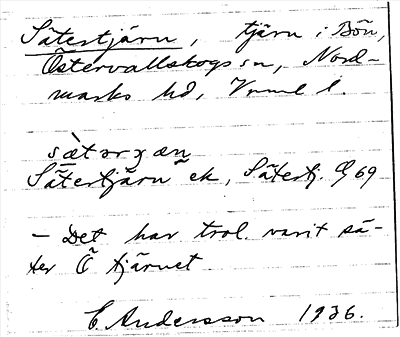 Sätertjärn, tjärn i Bön,
Östervallskogs sn, Nord-
marks hd, Vrml l.
sæ̀tərʒæn
Sätertjärn ek, Sätertj. G 69
– Det har trol. varit sä-
ter Ö tjärnet.
E. Andersson 1936.